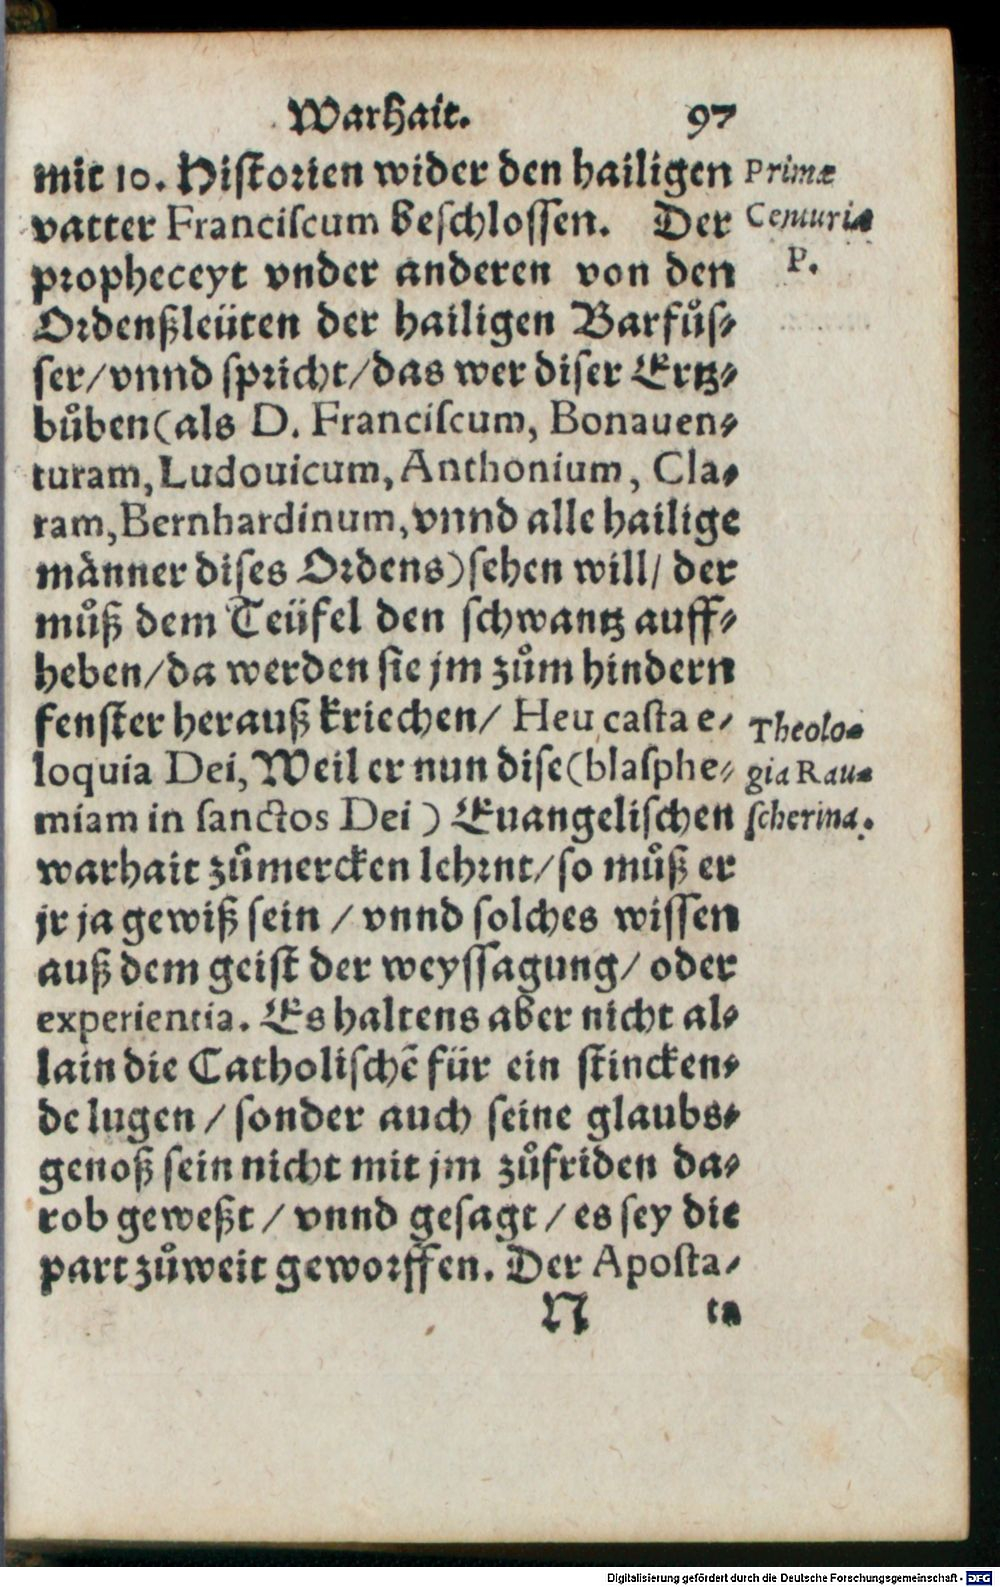 Warhait. 97
mit 10. Historien wider den hailigen
vatter Franciscum beschlossen. Der
propheceyt vnder anderen von den
Ordenßleüten der hailigen Barfuͦs⸗
ser/vnnd spricht/das wer diser Ertz⸗
buͦben(als D. Franciscum, Bonauen⸗
turam, Ludouicum, Anthonium, Cla⸗
ram, Bernhardinum, vnnd alle hailige
männer dises Ordens)sehen will/ der
muͦß dem Teüfel den schwantz auff⸗
heben/da werden sie jm zuͦm hindern
fenster herauß kriechen/ Heu casta e⸗
loquia Dei, Weil er nun dise(blasphe⸗
miam in sanctos Dei) Euangelischen
warhait zuͦmercken lehrnt/so muͦß er
jr ja gewiß sein / vnnd solches wissen
auß dem geist der weyssagung/ oder
experientia. Es haltens aber nicht al⸗
lain die Catholischē für ein stincken⸗
de lugen / sonder auch seine glaubs⸗
genoß sein nicht mit jm zuͦfriden da⸗
rob geweßt / vnnd gesagt / es sey die
part zuͦweit geworffen. Der Aposta⸗
N ta
Primæ
Centuriæ
P.
Theolo⸗
gia Rau⸗
scherina.
Digitalisierung gefördert durch die Deutsche Forschungsgemeinschaft - DFG